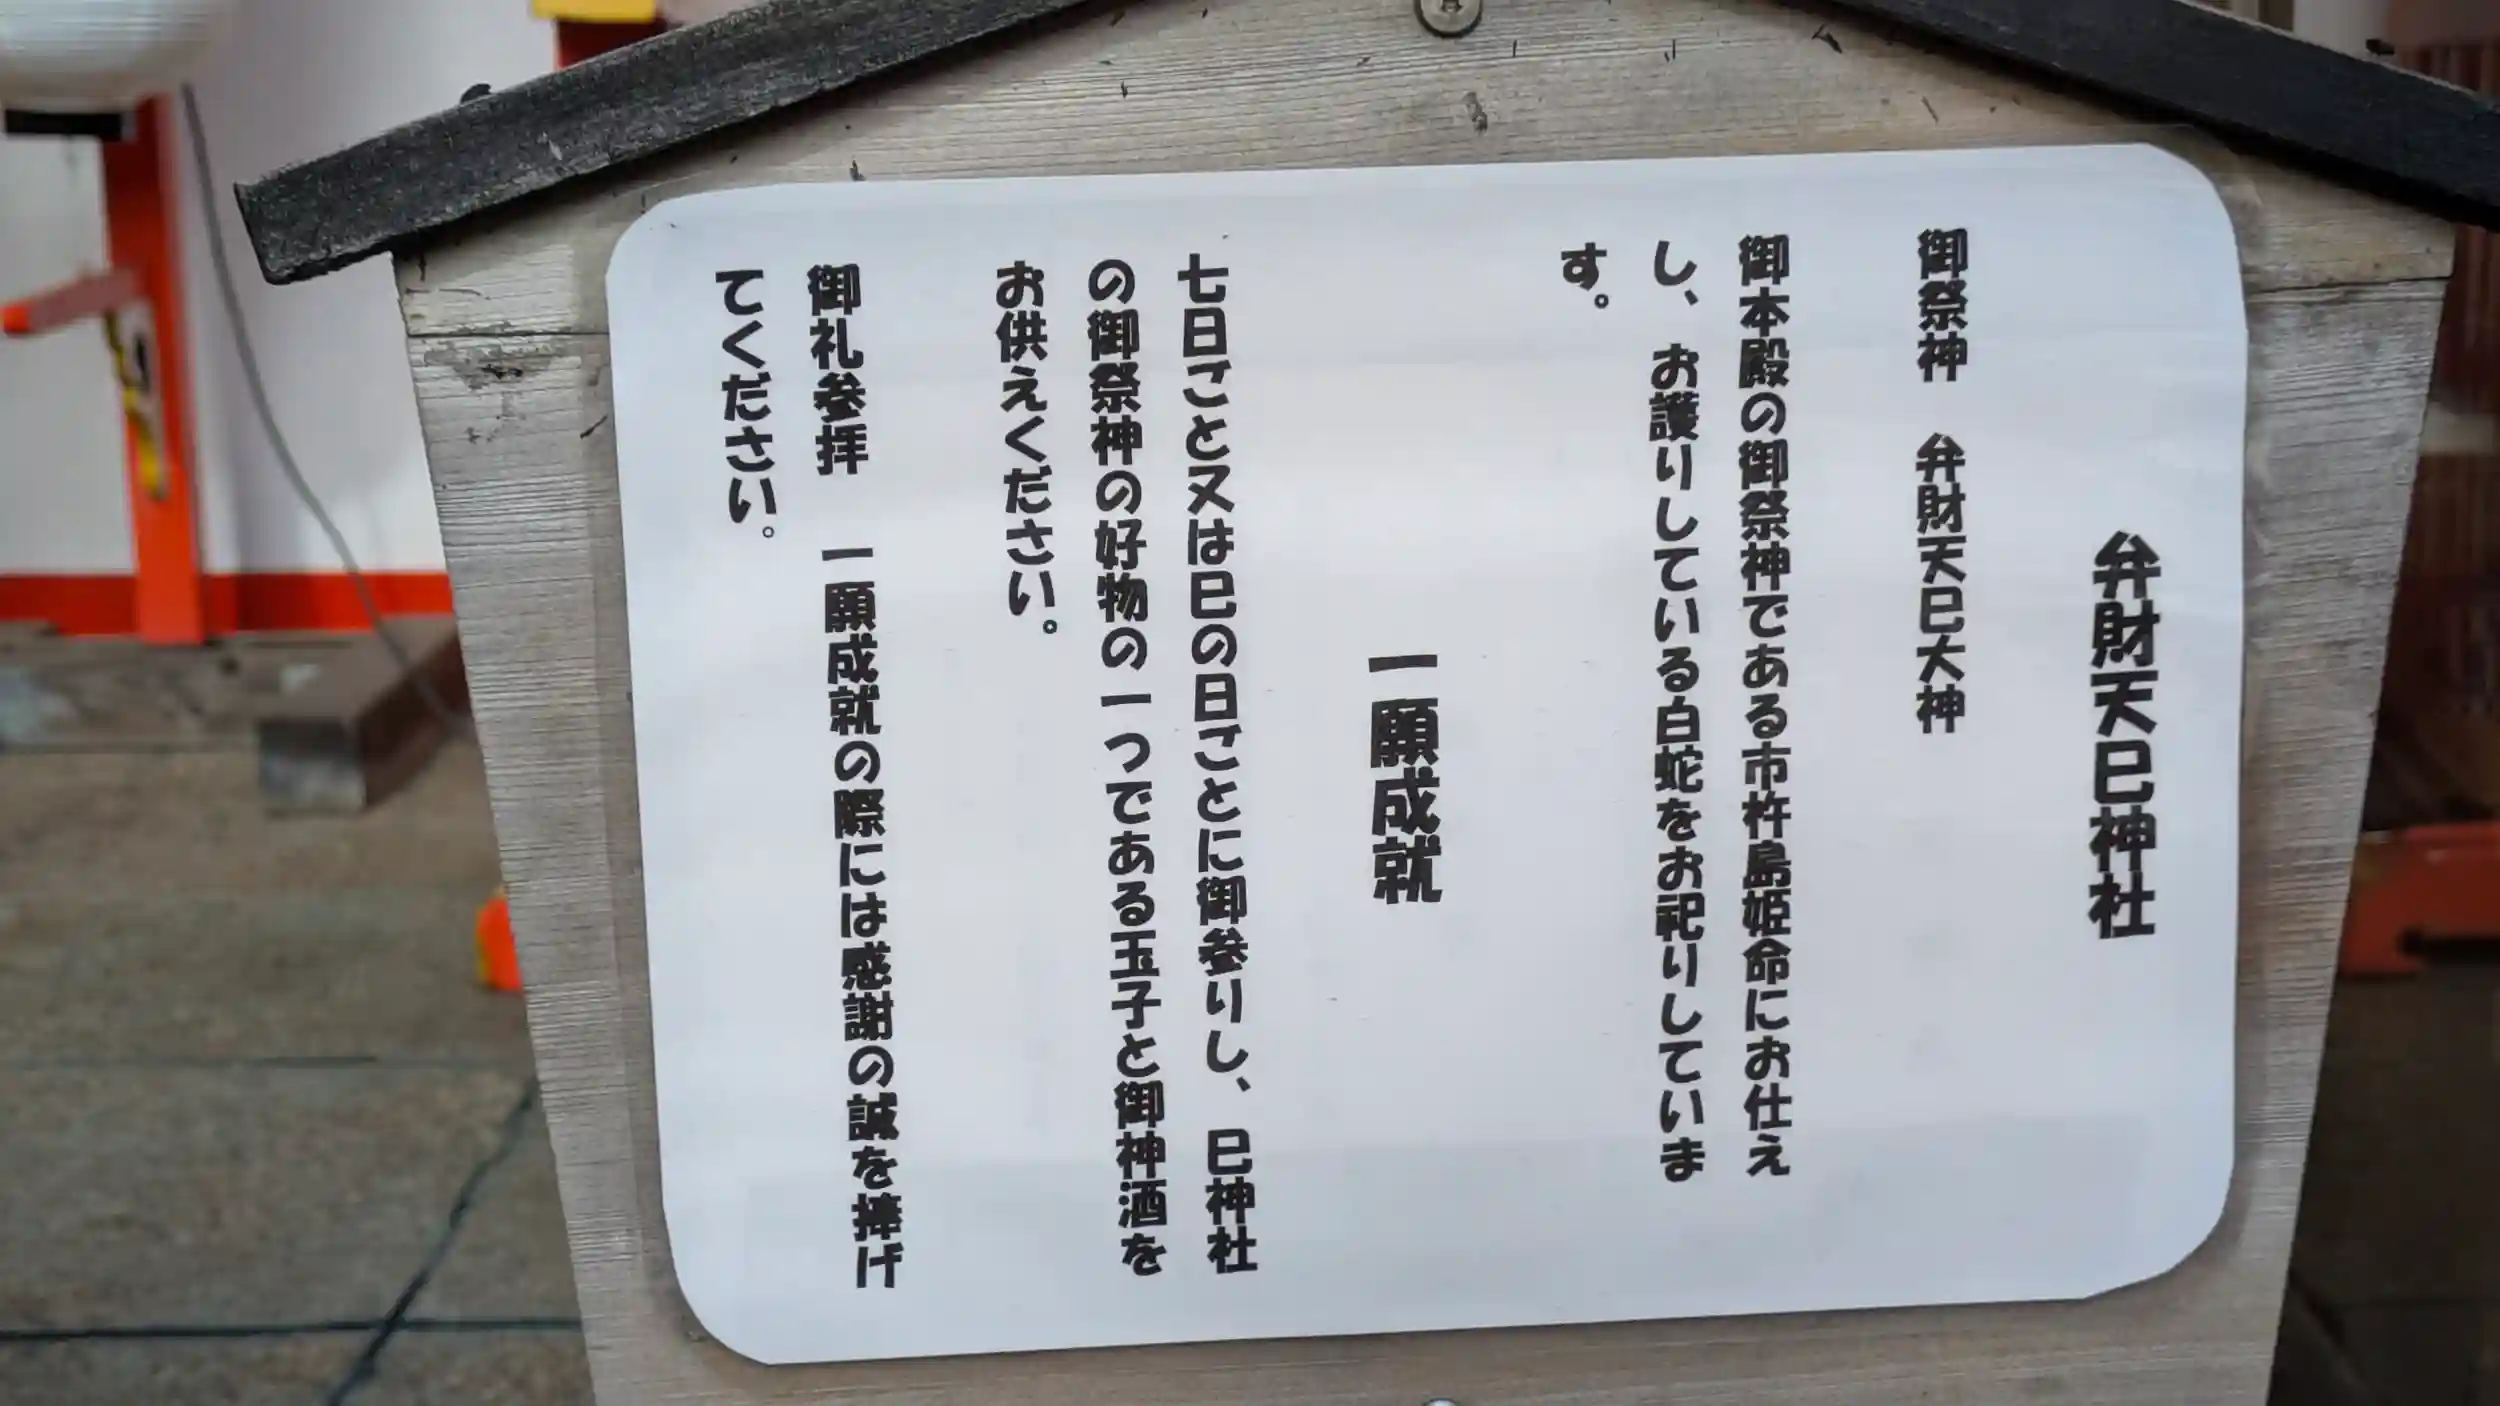 弁財天巳神社
御祭神　弁財天巳大神
御本殿の御祭神である市杵島姫命にお仕え
し、お護りしている白蛇をお祀りしていま
す。
一願成就
七日ごと又は巳の日ごとに御参りし、巳神社
の御祭神の好物の一つである玉子と御神酒を
お供えください。
御礼参拝　一願成就の際には感謝の誠を捧げ
てください。